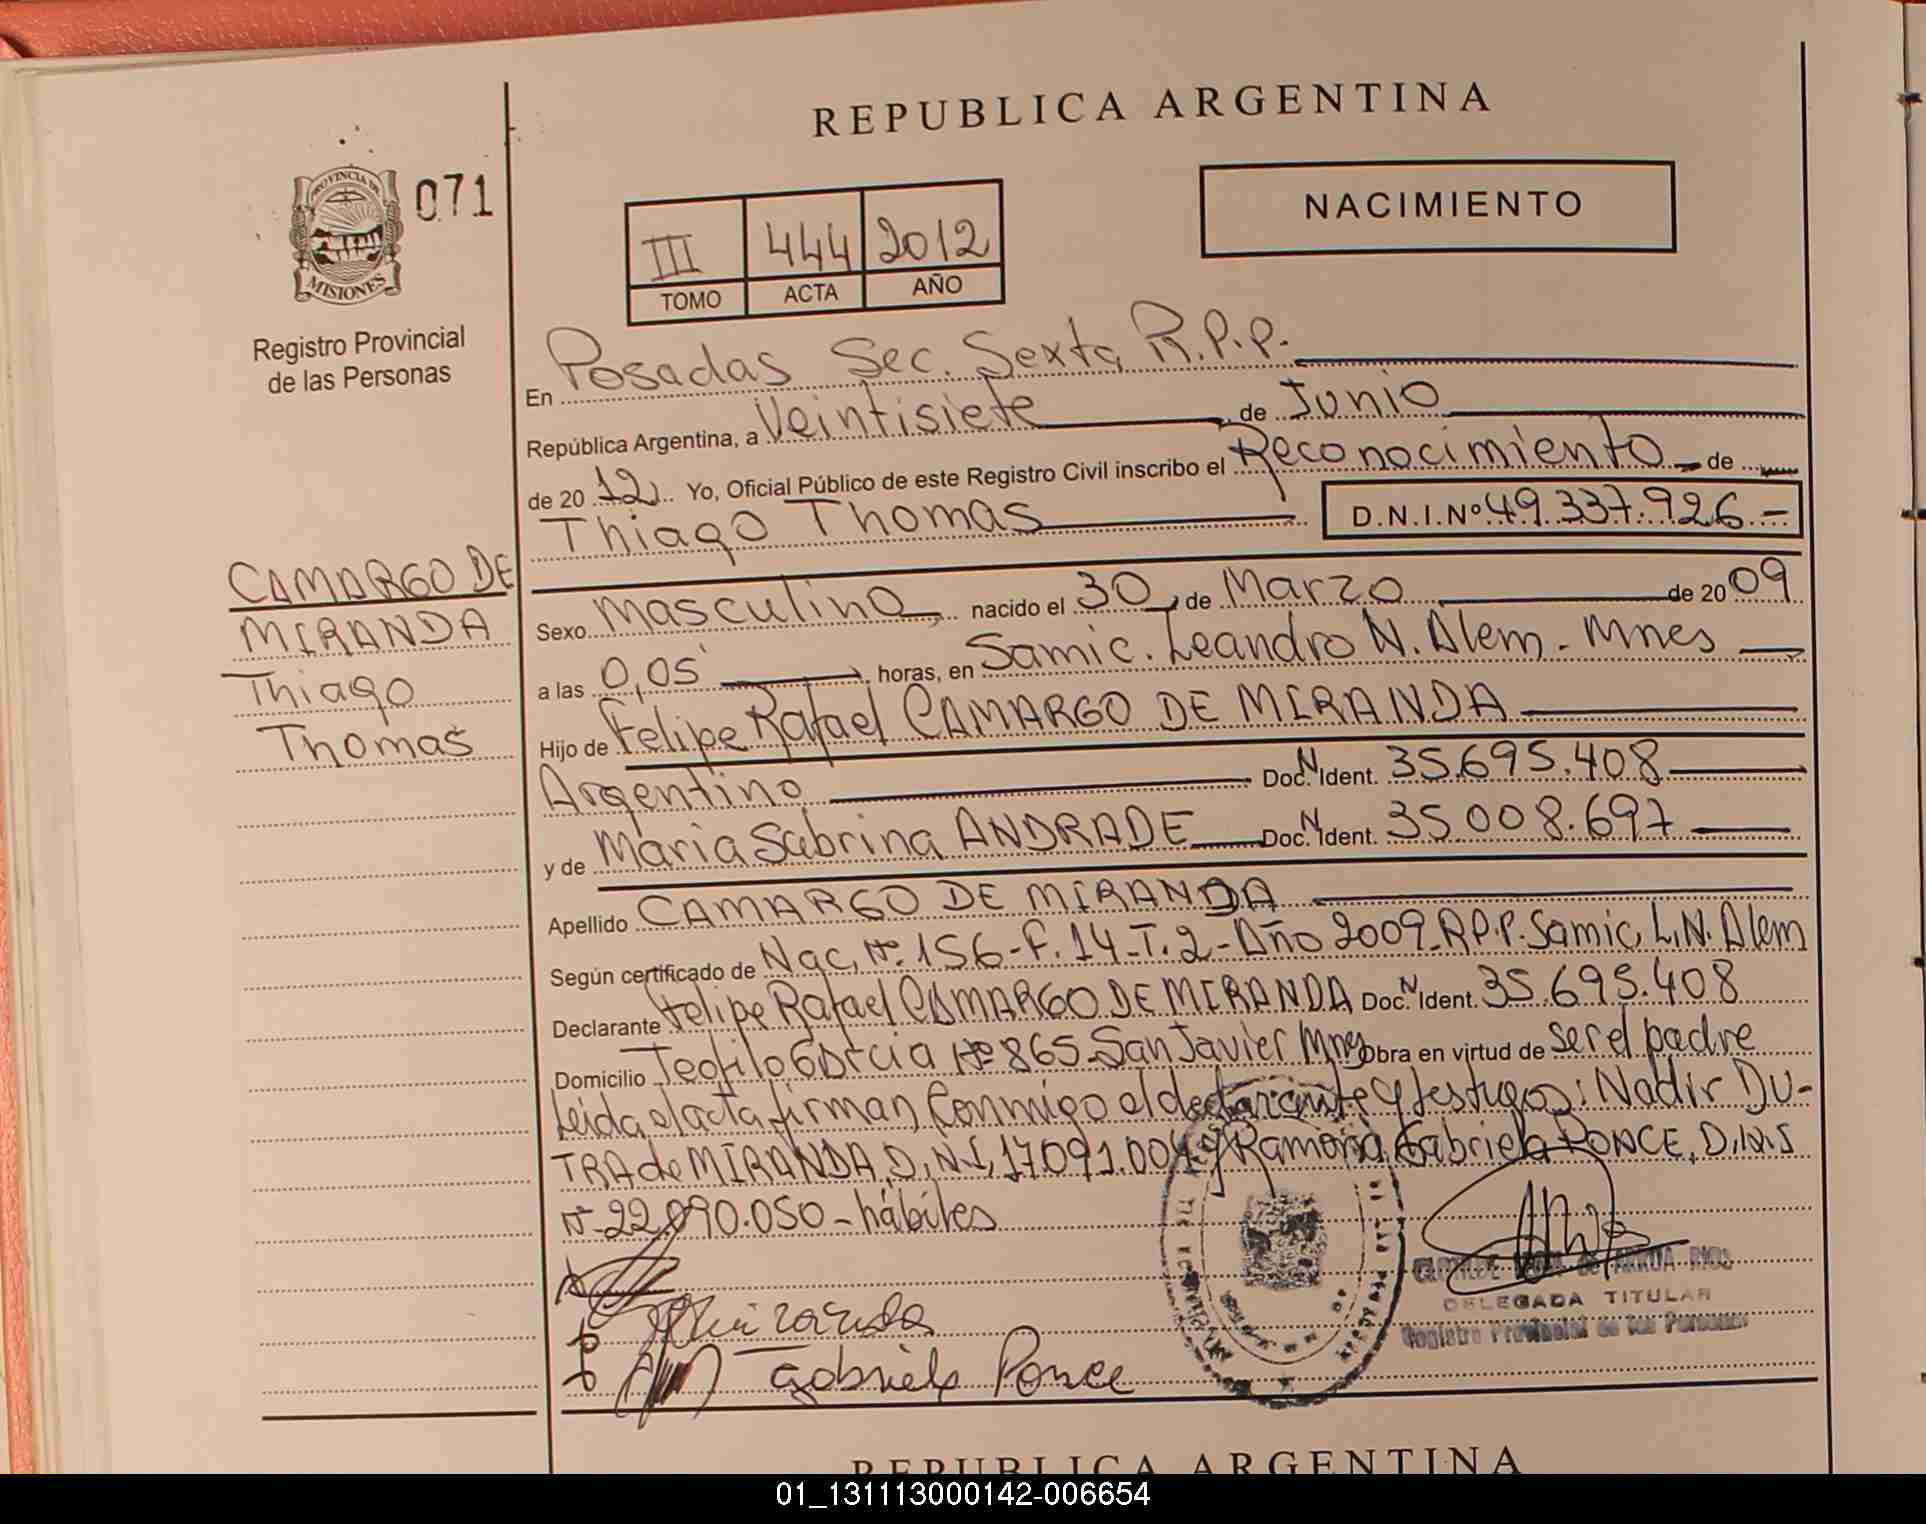 REPUBLICA ARGENTINA
PROVINCIA DE
MISIONES
071
Registro Provincial
de las Personas
III 444 2012
TOMO ACTA AÑO
NACIMIENTO
En Posadas Sec. Sexta R.P.P.
República Argentina, a Veintisiete de Junio
de 20 12 Yo, Oficial Público de este Registro Civil inscribo el Reconocimiento de
Thiago Thomas D.N.I.Nº 49.337.926.-
CAMARGO DE
MIRANDA
Thiago
Thomas
Sexo masculino, nacido el 30, de Marzo de 20 09
a las 0,05' horas, en Samic. Leandro N. Alem - Mnes
Hijo de Felipe Rafael CAMARGO DE MIRANDA
Argentino Doc. N Ident. 35.695.408
y de Maria Sabrina ANDRADE Doc. N Ident. 35.008.697
Apellido CAMARGO DE MIRANDA
Según certificado de Nac. Nº. 156-F. 14-T. 2-Año 2009-R.P.P. Samic, L.N. Alem
Declarante Felipe Rafael CAMARGO DE MIRANDA Doc. N Ident. 35.695.408
Domicilio Teofilo Garcia Nº 865 San Javier Mnes Obra en virtud de ser el padre
Leida el acta firman conmigo el declarante y testigos: Nadir DU-
TRA de MIRANDA, D.N.I. 17.091.004 y Ramona Gabriela PONCE, D.N.I
Nº 22.090.050 - hábiles
Miranda
Gabriela Ponce
DE ARRUA RIOS
DELEGADA TITULAR
Registro Provincial de las Personas
REPUBLICA ARGENTINA
01_131113000142-006654